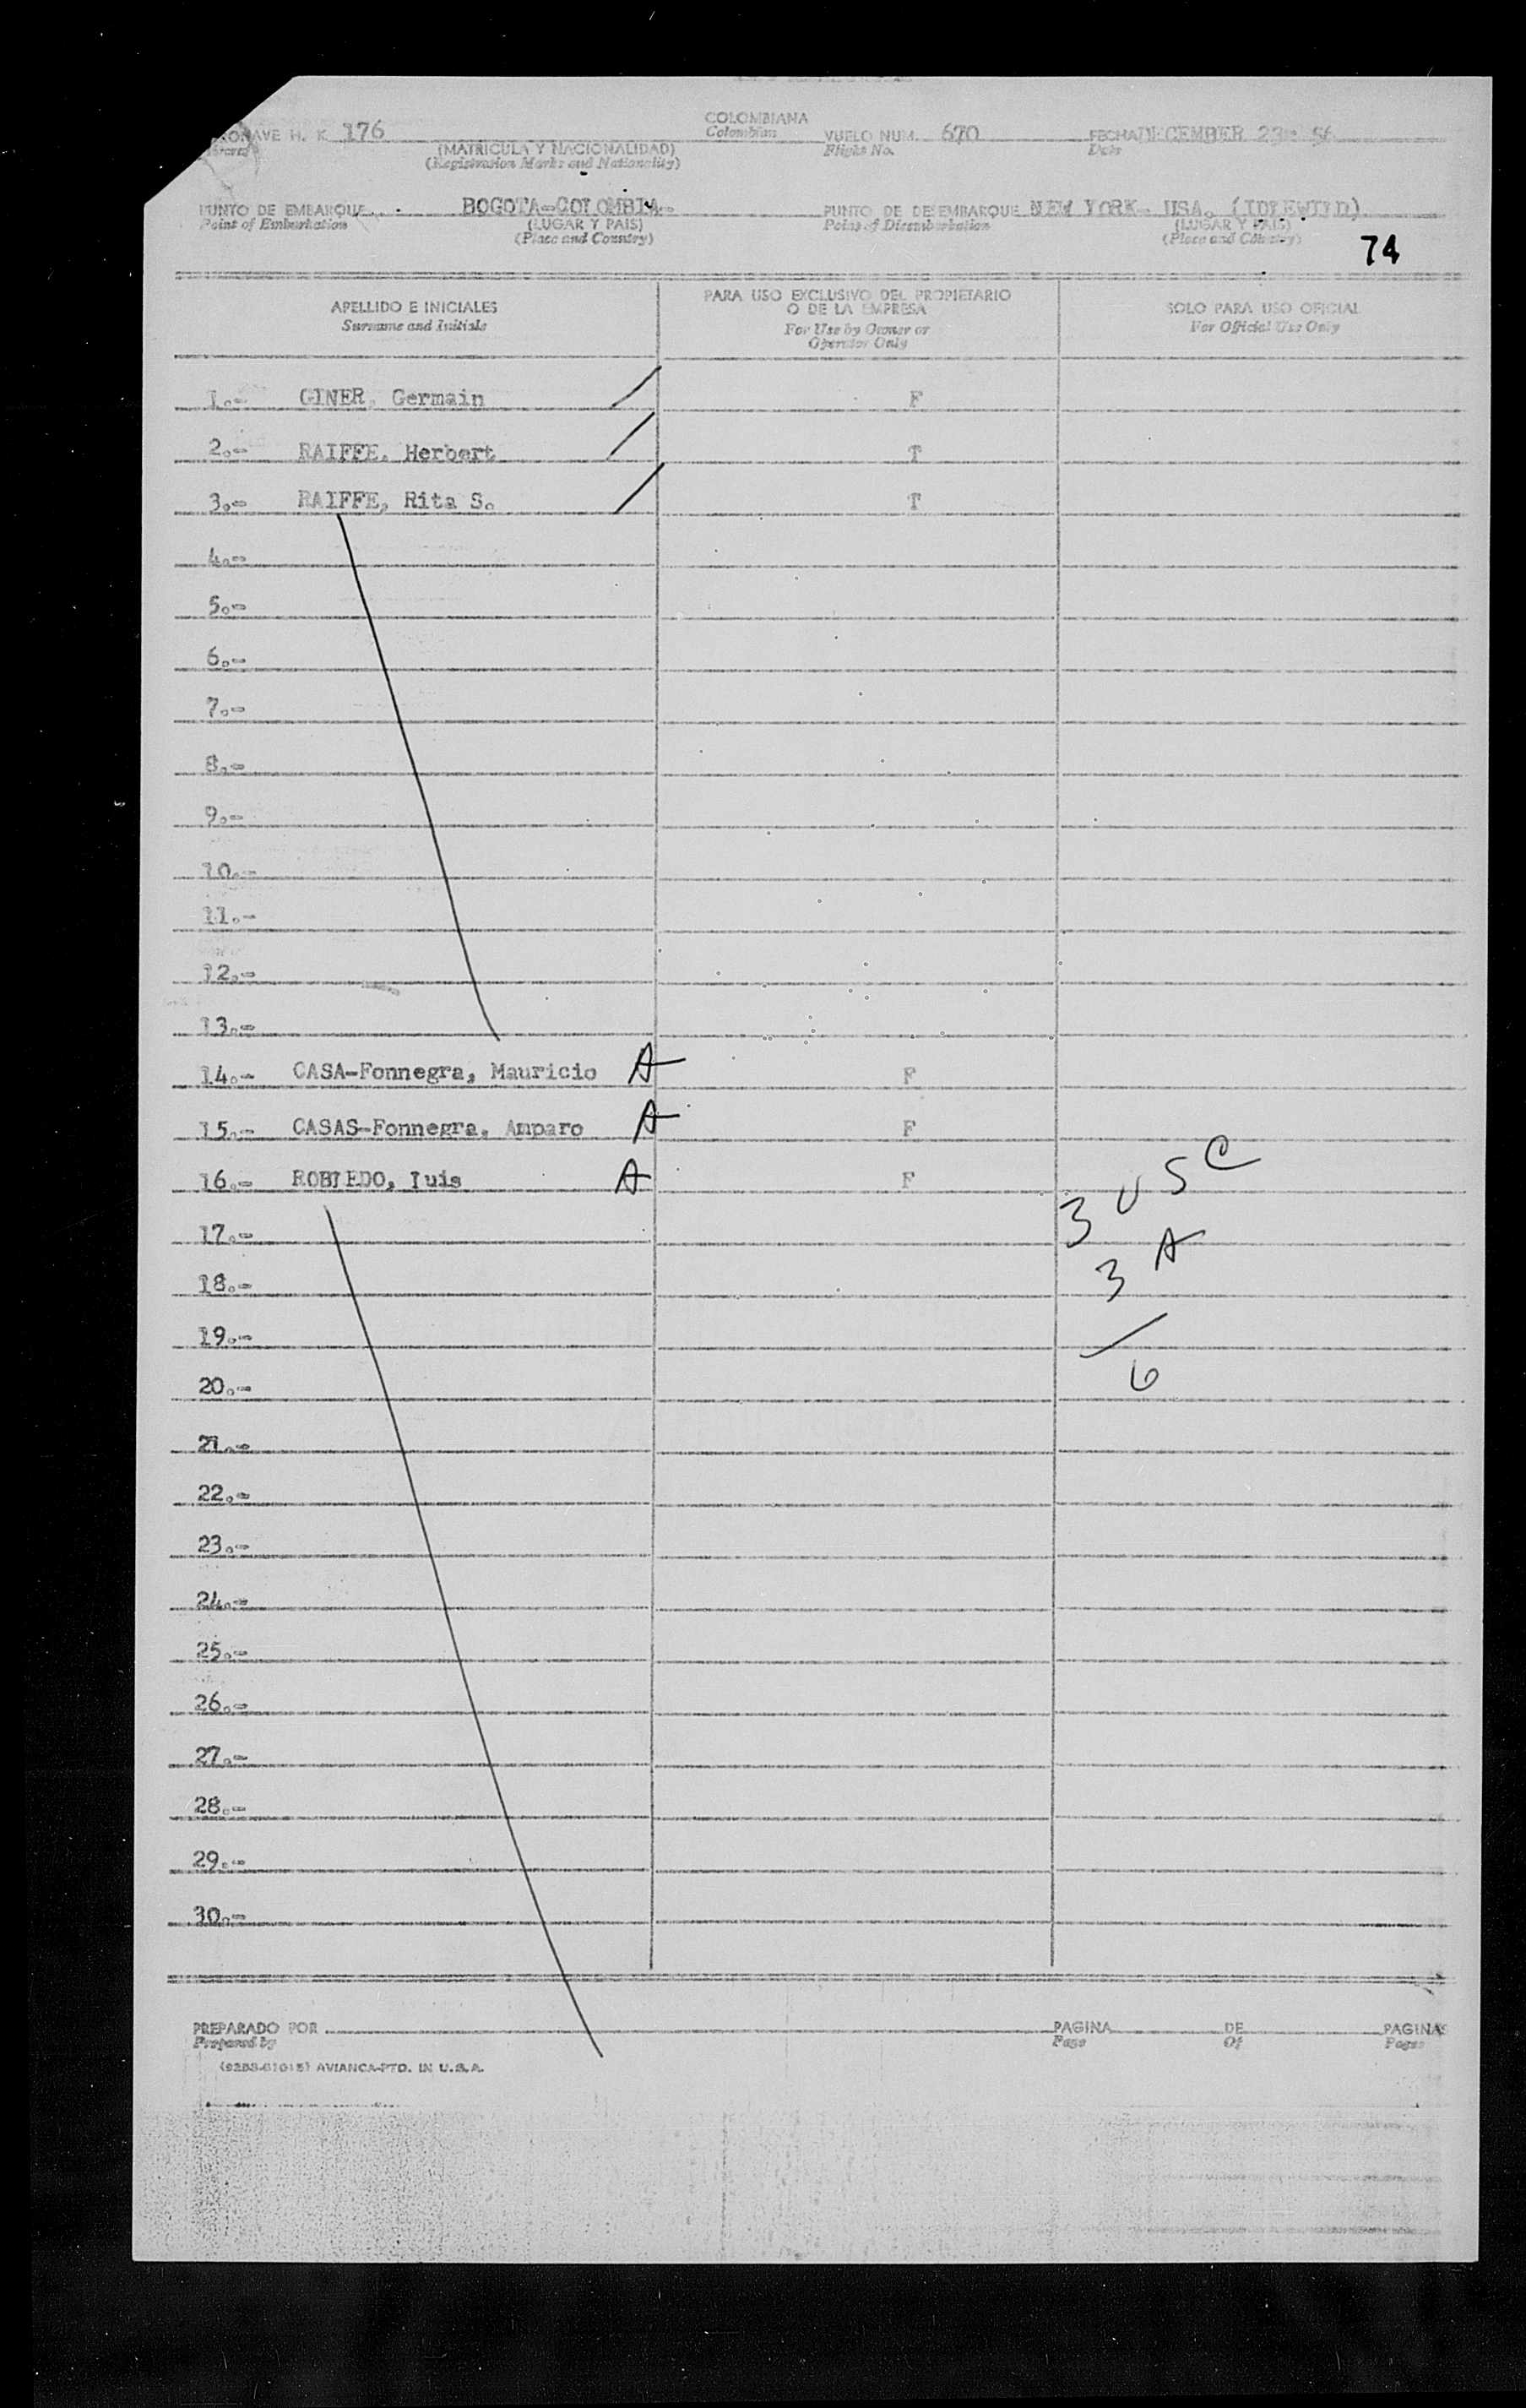 AVE H. K. 176 COLOMBIANA VUELO NUM. 670 FECHA DECEMBER 23- 56
Colombian Flight No. Date
(MATRICULA Y NACIONALIDAD)
(Registration Marks and Nationality)
PUNTO DE EMBARQUE BOGOTA-COLOMBIA- PUNTO DE DESEMBARQUE NEW YORK- USA. (IDLEWILD)
Point of Embarkation (LUGAR Y PAIS) Point of Disembarkation (LUGAR Y PAIS)
(Place and Country) (Place and Country)
74
APELLIDO E INICIALES PARA USO EXCLUSIVO DEL PROPIETARIO SOLO PARA USO OFICIAL
O DE LA EMPRESA
Surname and Initials For Use by Owner or For Official Use Only
Operator Only
1.- GINER, Germain F
2.- RAIFFE, Herbert T
3.- RAIFFE, Rita S. T
4.-
5.-
6.-
7.-
8.-
9.-
10.-
11.-
12.-
13.-
14.- CASA-Fonnegra, Mauricio A F
15.- CASAS-Fonnegra, Amparo A F
16.- ROBLEDO, Luis A F
3 USC
17.-
3 A
18.-
19.-
6
20.-
21.-
22.-
23.-
24.-
25.-
26.-
27.-
28.-
29.-
30.-
PREPARADO POR PAGINA DE PAGINAS
Prepared by Page Of Pages
AVIANCA-PTD. IN U.S.A.